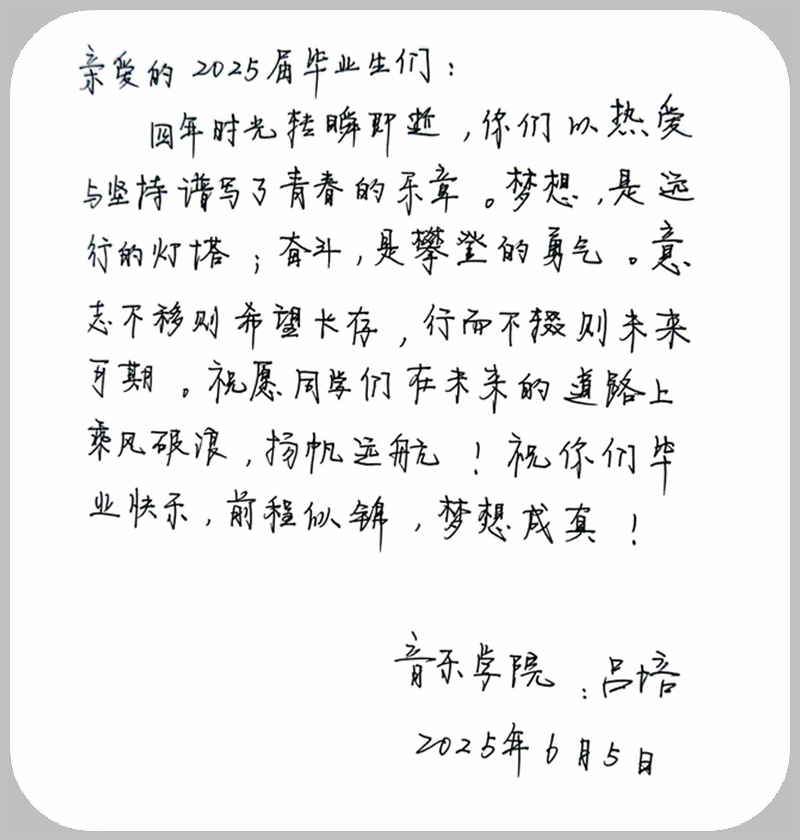 亲爱的2025届毕业生们：
四年时光转瞬即逝，你们以热爱
与坚持谱写了青春的乐章。梦想，是远
行的灯塔；奋斗，是攀登的勇气。意
志不移则希望长存，行而不辍则未来
可期。祝愿同学们在未来的道路上
乘风破浪，扬帆远航！祝你们毕
业快乐，前程似锦，梦想成真！
音乐学院：吕培
2025年6月5日